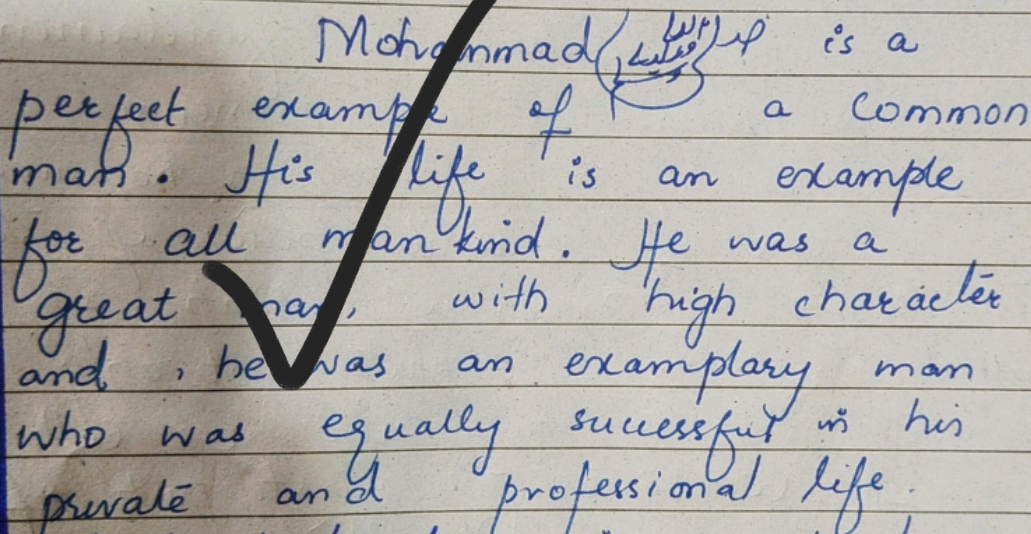 Mohammad is a
perfect example of a common
man. His life is an example
for all mankind. He was a
great man, with high character
and , he was an examplary man
who was equally successful in his
private and professional life.